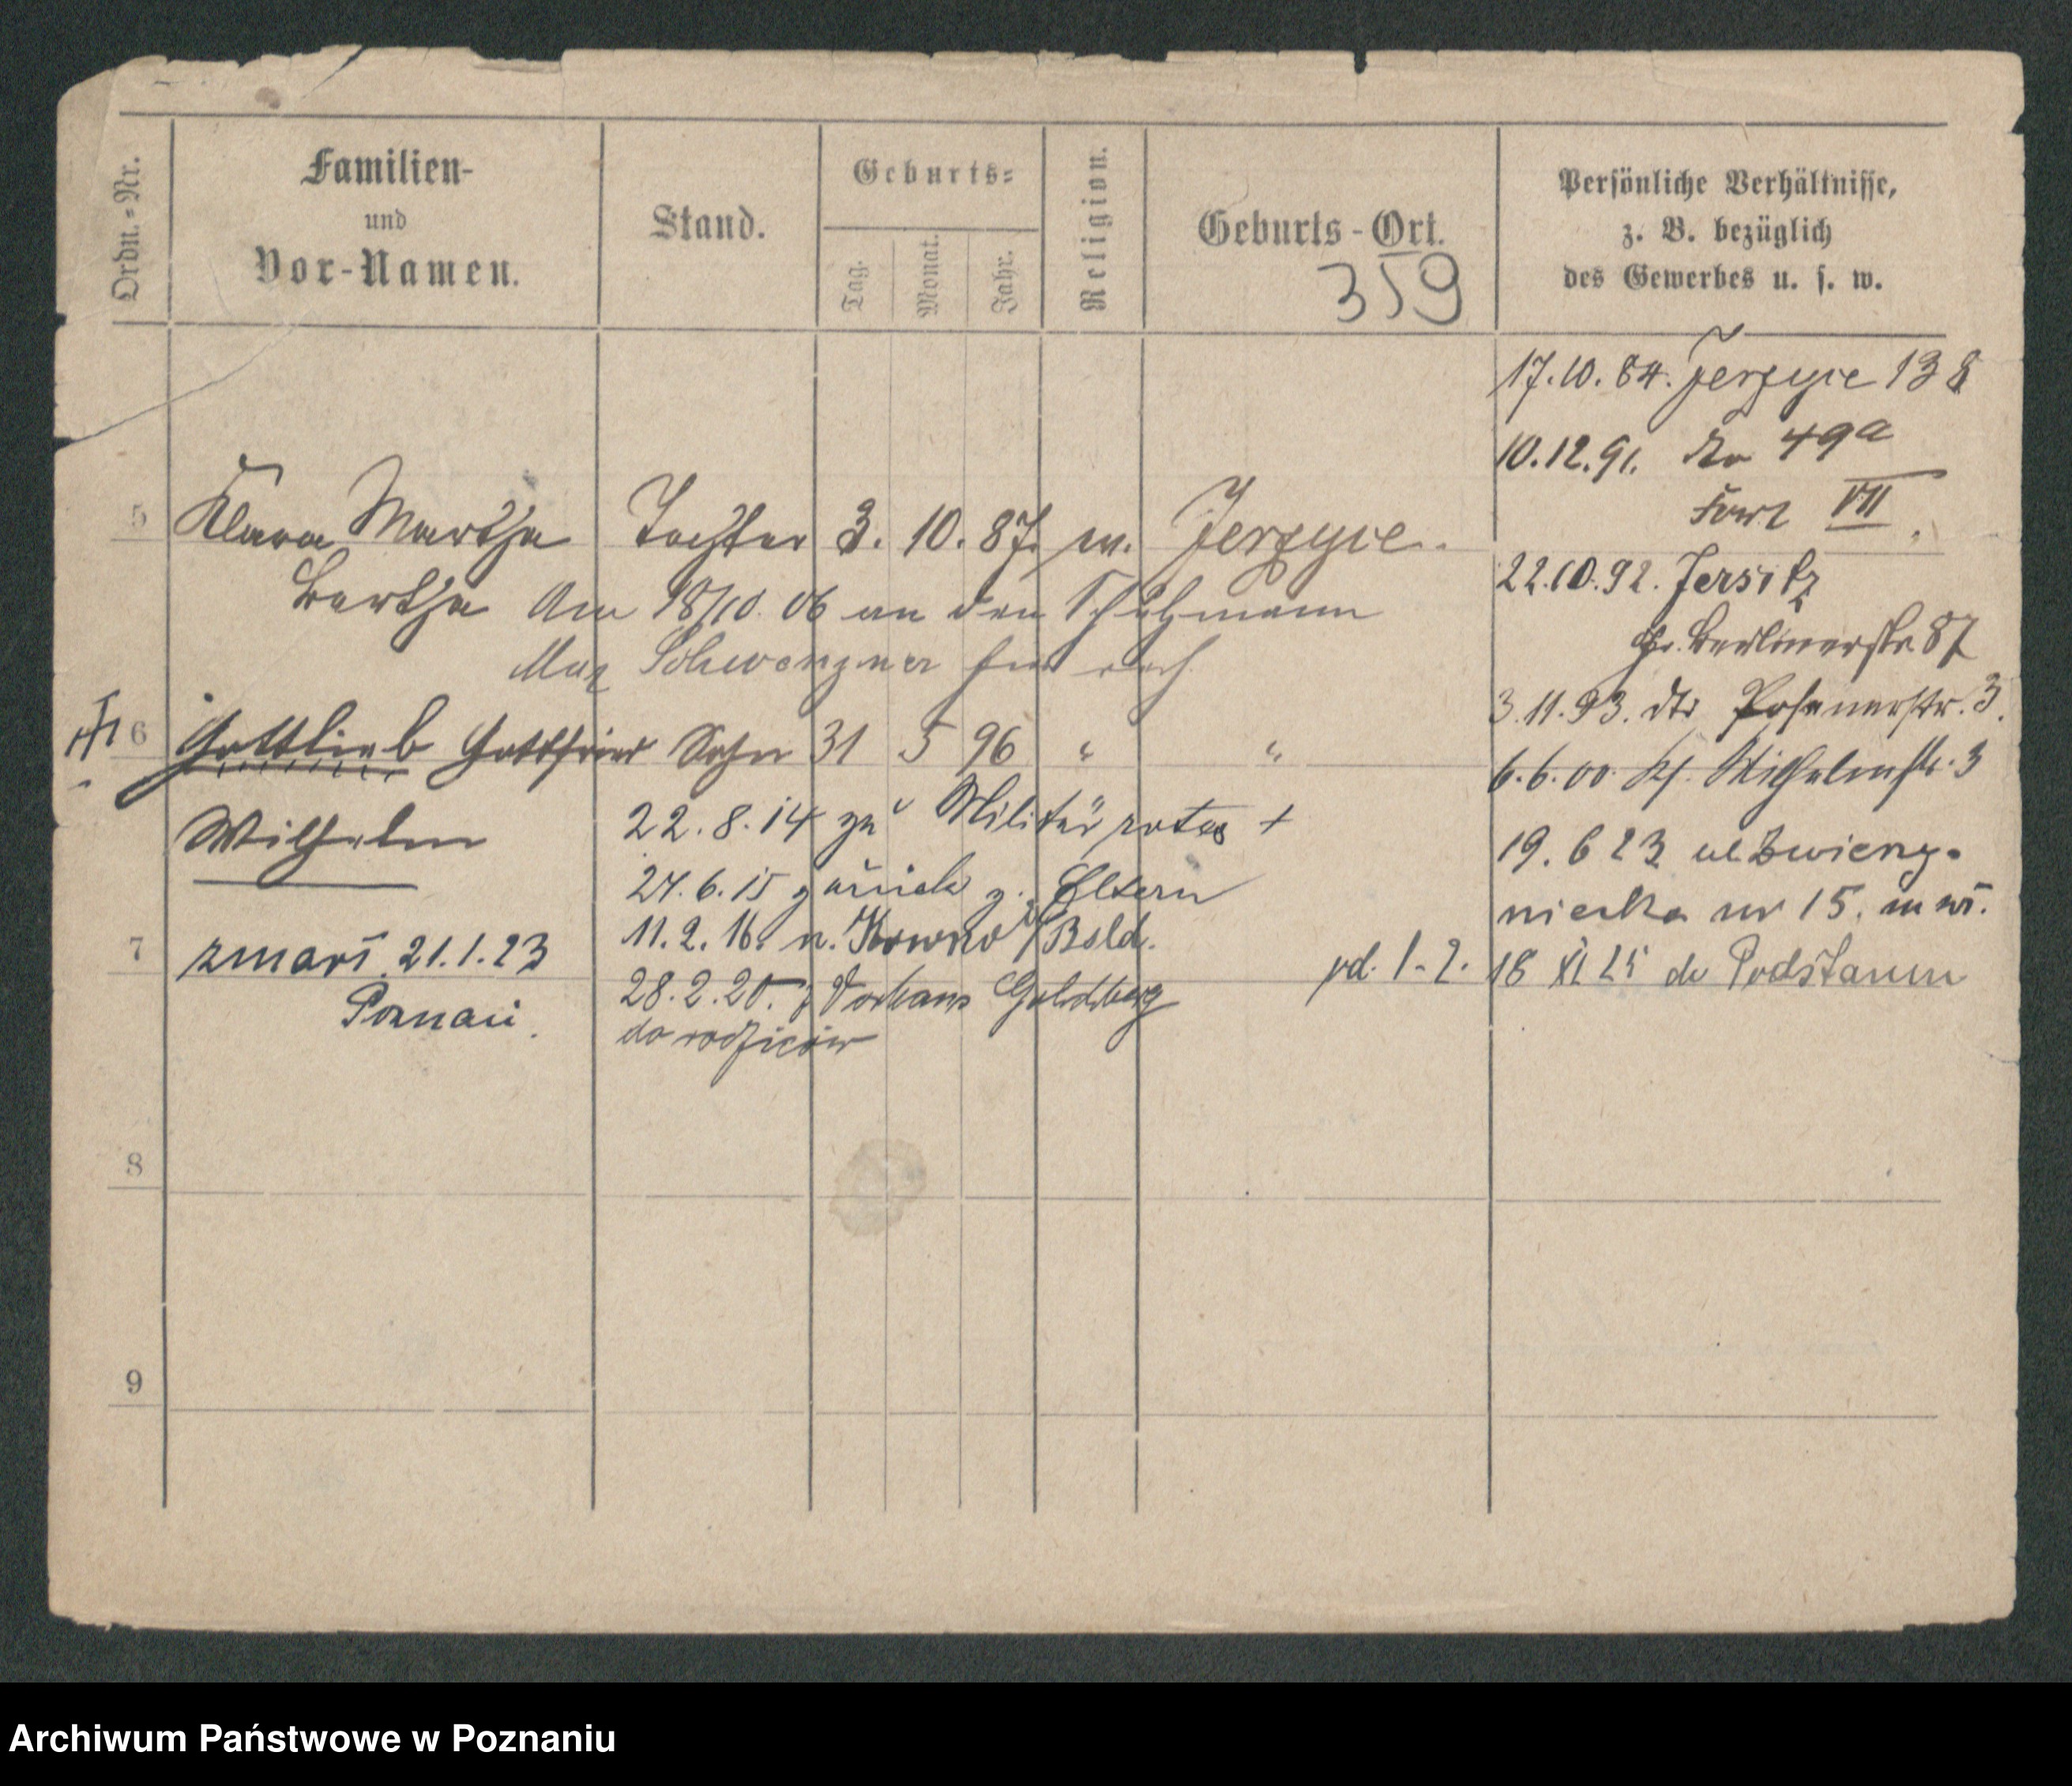 Ordn.-Nr.
Familien-
und
Vor-Namen.
Stand.
Geburts-
Tag.
Monat.
Jahr.
Religion.
Geburts-Ort.
359
Persönliche Verhältnisse,
z. B. bezüglich
des Gewerbes u. s. w.
17.10.84. Jerzyce 138
10.12.91. do 49a
Fort VII
5 Klara Martha Tochter 3. 10. 87. ev. Jerzyce.
Bertha Am 18/10.06 an den Schutzmann
Max Schwenzner
22.10.92. Jersitz
Gr. Berlinerstr. 87
3.11.93. dto Posenerstr. 3.
6 Gottlieb Gottfried Sohn 31 5 96 " "
6.6.00. Wilhelmstr. 3
Wilhelm
22.8.14 zu Militär +
24.6.15 zurück z. Eltern
11.2.16. n. Kowno / Bsld.
28.2.20. Goldberg
do rodziców
7 zmarł 21.1.23
Poznań.
19.6 23 ul Zwierzy-
niecka nr 15. m wł.
od. 1-2. 18 XI 25 do Podstanin
8
9
Archiwum Państwowe w Poznaniu